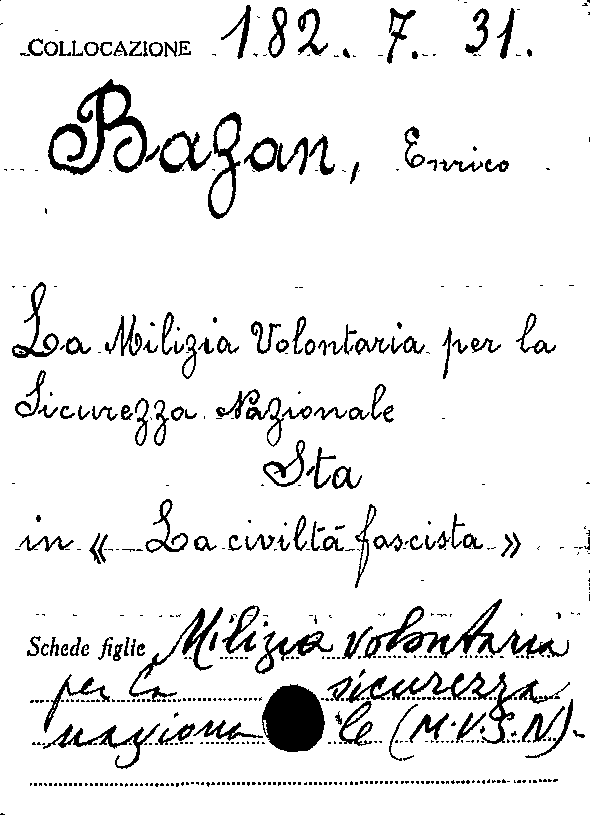 COLLOCAZIONE 182. 7. 31.
Bazan, Enrico
La Milizia Volontaria per la
Sicurezza Nazionale
Sta
in « La civiltà fascista »
Schede figlie Milizia volontaria
per la sicurezza
nazionale (M.V.S.N).